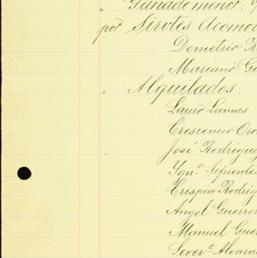 Ganado menor:
por Sirvtes Acomod
Demetrio R
Mariano G
Alquilados:
Lauro Lamas
Crescencio Oro
José Rodrigu
Ygn.º Sifuentes
Crispin Rodrig
Angel Guerrer
Manuel Gue
Sever.º Alvarad